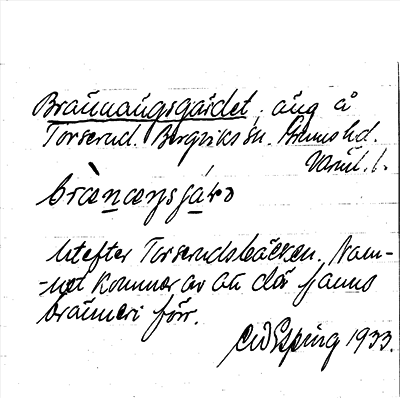 Brännängsgärdet, äng å
Torserud. Borgviks sn. Grums hd.
Värml. l.
bræ̀næŋsjáʈə
Utefter Torserudsbäcken. Nam-
-net kommer av att där fanns
bränneri förr.
1933.